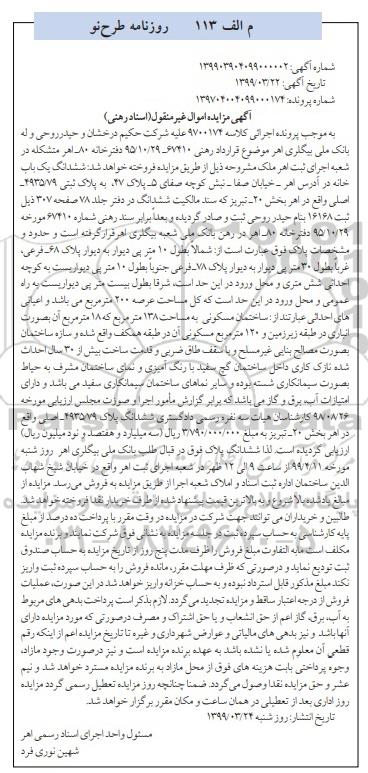 م الف ۱۱۳ روزنامه طرح‌نو
شماره آگهی: ۱۳۹۹۰۳۹۰۴۰۹۹۰۰۰۰۰۲
تاریخ آگهی: ۱۳۹۹/۰۳/۲۲
شماره پرونده: ۱۳۹۷۰۴۰۰۴۰۹۹۰۰۰۱۷۴
آگهی مزایده اموال غیرمنقول(اسناد رهنی)
به موجب پرونده اجرائی کلاسه ۹۷۰۰۱۷۴ علیه شرکت حکیم درخشان و حیدر روحی و له
بانک ملی بیگلری اهر موضوع قرارداد رهنی ۶۷۴۱۰ـ۹۵/۱۰/۲۹ دفترخانه ۸۰ـ اهر متشکله در
شعبه اجرای ثبت اهر ملک مشروحه ذیل از طریق مزایده فروخته خواهد شد: ششدانگ یک باب
خانه در آدرس اهر ـ خیابان صفا ـ نبش کوچه صفای ۵ـ پلاک ۴۷، به پلاک ثبتی ۴۹۳۵/۷۹ـ
اصلی واقع در اهر بخش ۲۰ـ تبریز که سند مالکیت ششدانگ در دفتر جلد ۷۸ صفحه ۳۰۷ ذیل
ثبت ۱۶۱۶۸ بنام حیدر روحی ثبت و صادر گردیده و بعداً برابر سند رهنی شماره ۶۷۴۱۰ مورخه
۹۵/۱۰/۲۹ دفترخانه ۸۰ـ اهر در رهن بانک ملی شعبه بیگلری اهر قرار گرفته است و حدود و
مشخصات پلاک فوق عبارت است از: شمالاً بطول ۱۰ متر پی دیوار به دیوار پلاک ۶۸ـ فرعی،
غرباً بطول ۳۰ متر پی دیوار به دیوار پلاک ۷۸ـ فرعی جنوباً بطول ۱۰ متر پی دیواریست به کوچه
احداثی شش متری و محل ورود در این حد است، شرقاً بطول بیست متر پی دیواریست به راه
عمومی و محل ورود در این حد است که کل مساحت عرصه ۲۰۰ مترمربع می باشد و اعیانی
های احداثی عبارتند از: ساختمان مسکونی به مساحت ۱۳۸ متر مربع که ۱۸ مترمربع آن بصورت
انباری در طبقه زیرزمین و ۱۲۰ مترمربع مسکونی آن در طبقه همکف واقع شده و سازه ساختمان
بصورت مصالح بنایی غیرمسلح و با سقف طاق ضربی و قدمت ساخت بیش از ۳۰ سال احداث
شده نازک کاری داخل ساختمان گچ سفید با رنگ آمیزی و نمای ساختمان مشرف به حیاط
بصورت سیمانکاری شسته بوده و سایر نماهای ساختمان سیمانکاری سفید می باشد و دارای
امتیازات آب، برق و گاز می باشد که برابر گزارش مأمور اجرا و صورت مجلس ارزیابی مورخه
۹۸/۰۸/۲۶ کارشناسان هیأت سه نفره رسمی دادگستری ششدانگ پلاک ۴۹۳۵/۷۹ـ اصلی واقع
در اهر بخش ۲۰ـ تبریز به مبلغ ۳/۷۹۰/۰۰۰/۰۰۰ ریال (سه میلیارد و هفتصد و نود میلیون ریال)
ارزیابی گردیده است. لذا ششدانگ پلاک فوق در قبال طلب بانک ملی بیگلری اهر روز شنبه
مورخه ۹۹/۴/۱۱ از ساعت ۹ الی ۱۲ ظهر در شعبه اجرای ثبت اهر واقع در خیابان شیخ شهاب
الدین ساختمان اداره ثبت اسناد و املاک شعبه اجرا از طریق مزایده به فروش می‌رسد. مزایده از
مبلغ یادشده بالا شروع و به بالاترین قیمت پیشنهاد شده از طرف خریدار نقداً فروخته خواهد شد.
طالبین و خریداران می توانند جهت شرکت در مزایده در وقت مقرر با پرداخت ده درصد از مبلغ
پایه کارشناسی به حساب سپرده ثبت در جلسه مزایده به نشانی فوق شرکت نمایند و برنده مزایده
مکلف است مابه التفاوت مبلغ فروش را ظرف مدت پنج روز از تاریخ مزایده به حساب صندوق
ثبت تودیع نماید و درصورتی که ظرف مهلت مقرر، مانده فروش را به حساب سپرده ثبت واریز
نکند مبلغ مذکور قابل استرداد نبوده و به حساب خزانه واریز خواهد شد در این صورت، عملیات
فروش از درجه اعتبار ساقط و مزایده تجدید می‌گردد. لازم بذکر است پرداخت بدهی های مربوط
به آب، برق، گاز اعم از حق انشعاب و یا حق اشتراک و مصرف درصورتی که مورد مزایده دارای
آنها باشد و نیز بدهی های مالیاتی و عوارض شهرداری و غیره تا تاریخ مزایده اعم از اینکه رقم
قطعی آن معلوم شده یا نشده باشد به عهده برنده مزایده است و نیز درصورت وجود مازاد،
وجوه پرداختی بابت هزینه های فوق از محل مازاد به برنده مزایده مسترد خواهد شد و نیم
عشر و حق مزایده نقداً وصول می‌گردد. ضمناً چنانچه روز مزایده تعطیل رسمی گردد مزایده
روز اداری بعد از تعطیلی در همان ساعت و مکان مقرر برگزار خواهد شد.
تاریخ انتشار: روز شنبه ۱۳۹۹/۰۳/۲۴
مسئول واحد اجرای اسناد رسمی اهر
شهین نوری فرد